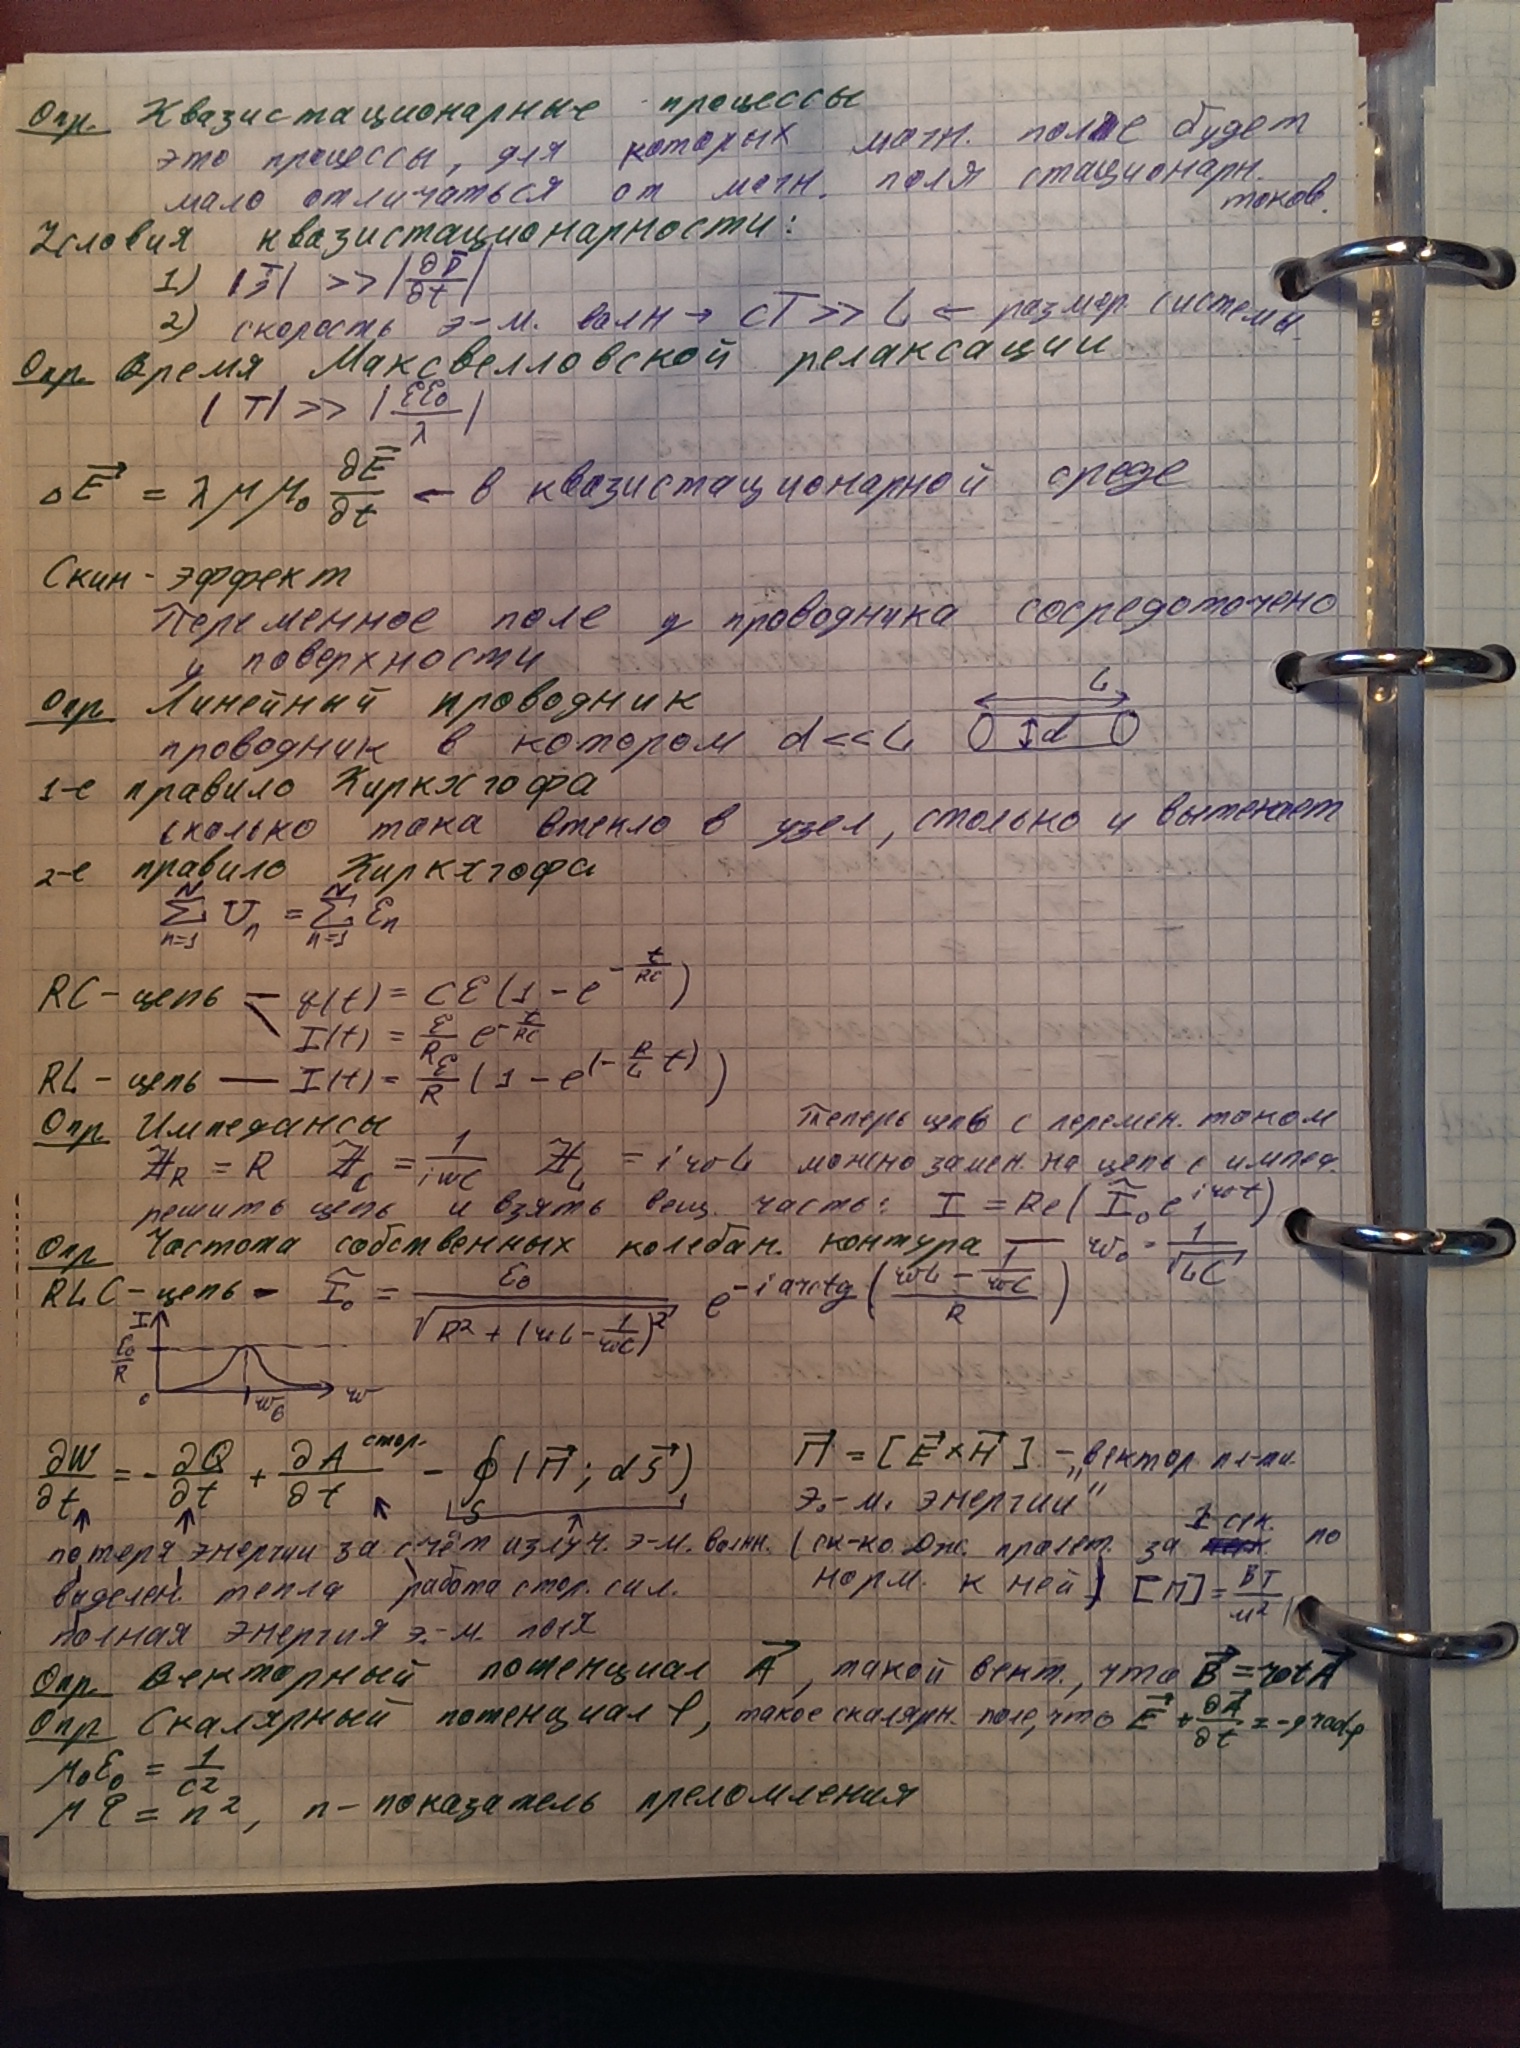 Опр. Квазистационарные процессы
это процессы, для которых магн. поле будет
мало отличаться от магн. поля стационарн.
токов.
Условия квазистационарности:
1) |j⃗| >> |∂D⃗/∂t|
2) скорость э-м. волн → cT >> L ← размер системы.
Опр. Время Максвелловской релаксации
|T| >> |εε₀/λ|
ΔE⃗ = λμμ₀ ∂E⃗/∂t ← в квазистационарной среде
Скин-эффект
Переменное поле у проводника сосредоточено
у поверхности
Опр. Линейный проводник
L
проводник в котором d<<L
d
1-е правило Киркхгофа
сколько тока втекло в узел, столько и вытекает
2-е правило Киркхгофа
∑ₙ₌₁ᴺ Uₙ = ∑ₙ₌₁ᴺ εₙ
RC-цепь — q(t) = Cε(1 - e^(-t/RC))
I(t) = ε/R e^(-t/RC)
RL-цепь — I(t) = ε/R (1 - e^(-R/L t))
Опр. Импедансы Теперь цепь с перемен. током
Z_R = R Z_C = 1/iωC Z_L = iωL можно замен. на цепь с импед.
решить цепь и взять вещ. часть: I = Re(Ĩ₀e^(iωt))
Опр. Частота собственных колебан. контура — ω₀ = 1/√LC
RLC-цепь - Ĩ₀ = ε₀/√(R² + (ωL - 1/ωC)²) e^(-i arctg((ωL - 1/ωC)/R))
I
ε₀/R
0 ω₀ ω
∂W/∂t = -∂Q/∂t + ∂A^стор./∂t - ∮_S (П⃗; dS⃗) П⃗ = [E⃗×H⃗] - "вектор пл-ти
э.-м. энергии"
потеря энергии за счёт излуч. э-м. волн. (ск-ко Дж. пролет. за 1 сек. по
выделен. тепла работа стор. сил. норм. к ней) [П] = Вт/м²
полная энергия э.-м. поля
Опр. Векторный потенциал A⃗, такой вект., что B⃗ = rot A⃗
Опр. Скалярный потенциал φ, такое скалярн. поле, что E⃗ + ∂A⃗/∂t = -grad φ
μ₀ε₀ = 1/c²
με = n², n - показатель преломления